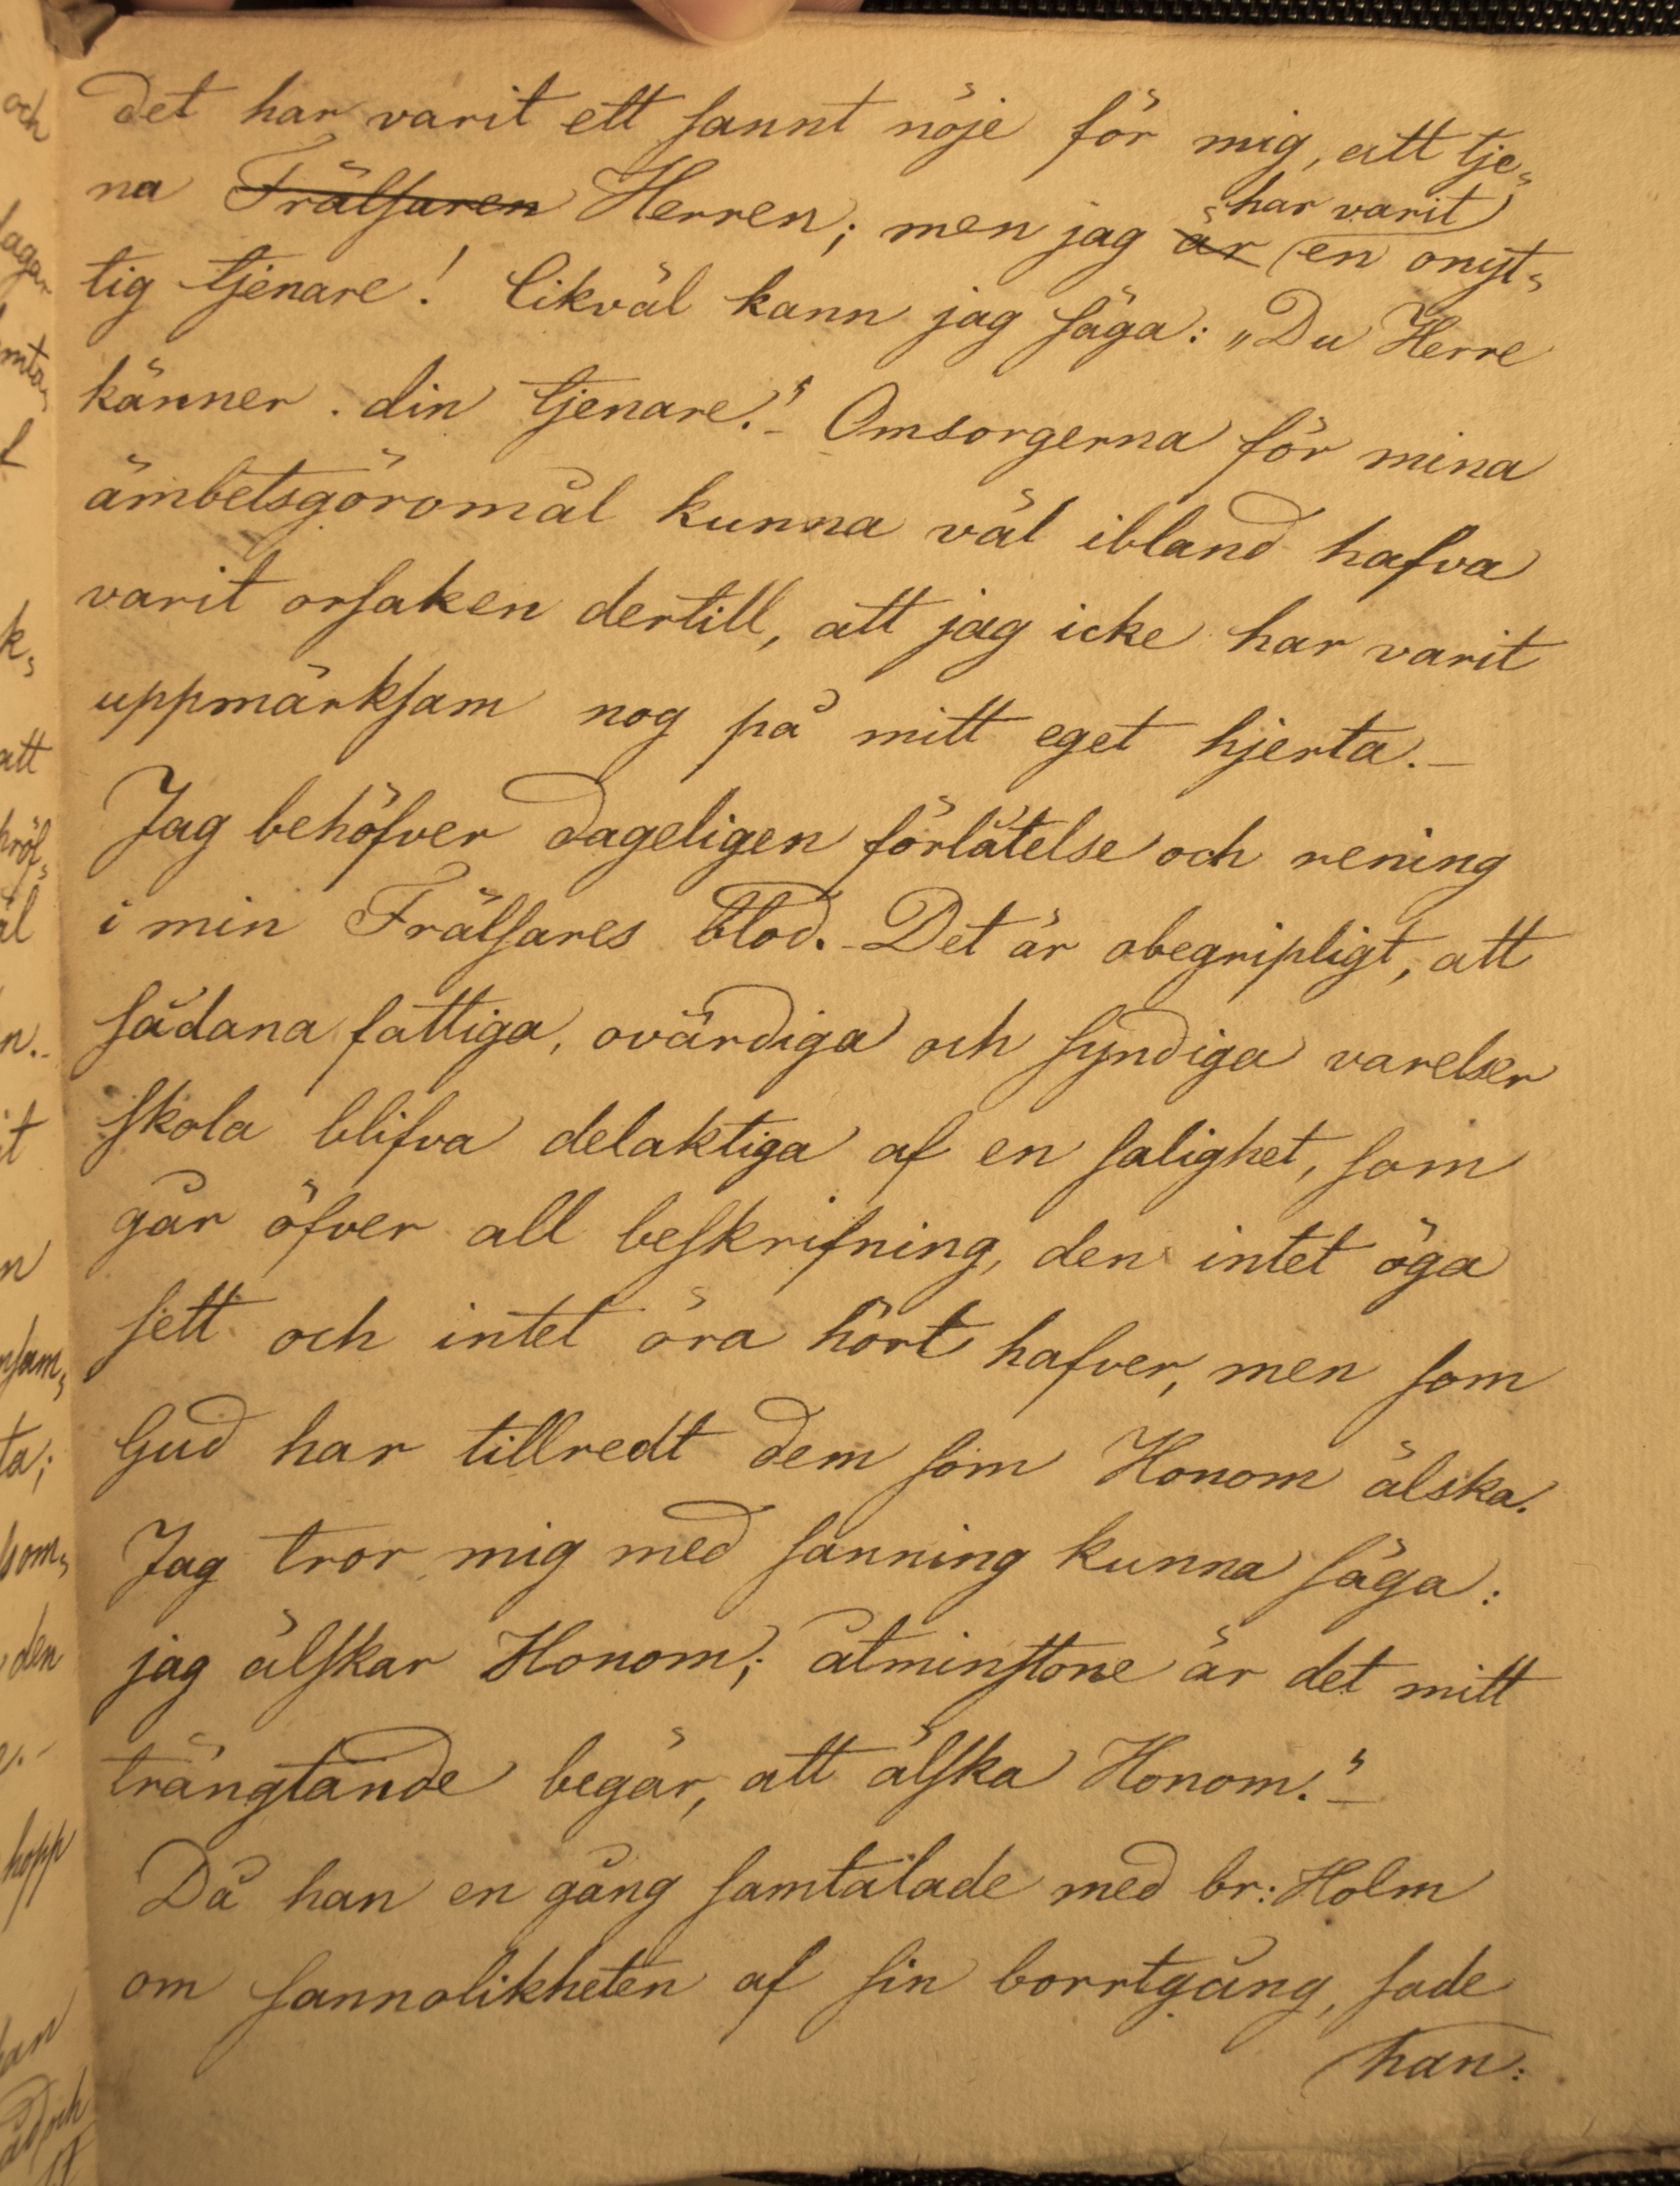 det har varit ett sannt nöje för mig, att tje-
na Frälsaren Herren; men jag är har varit en onyt-
tig tjenare! Likväl kann jag säga: „Du Herre
känner din tjenare." - Omsorgerna för mina
ämbetsgöromål kunna väl ibland hafva
varit orsaken dertill, att jag icke har varit
uppmärksam nog på mitt eget hjerta. -
Jag behöfver dageligen förlåtelse och rening
i min Frälsares blod. - Det är obegripligt, att
sådana fattiga, ovärdiga och syndiga varelser
skola blifva delaktiga af en salighet, som
går öfver all beskrifning, den intet öga
sett och intet öra hört hafver, men som
Gud har tillredt dem som Honom älska.
Jag tror mig med sanning kunna säga:
jag älskar Honom; åtminstone är det mitt
trängtande begär, att älska Honom." -
Då han en gång samtalade med br: Holm
om sannolikheten af sin borrtgång, sade
han: